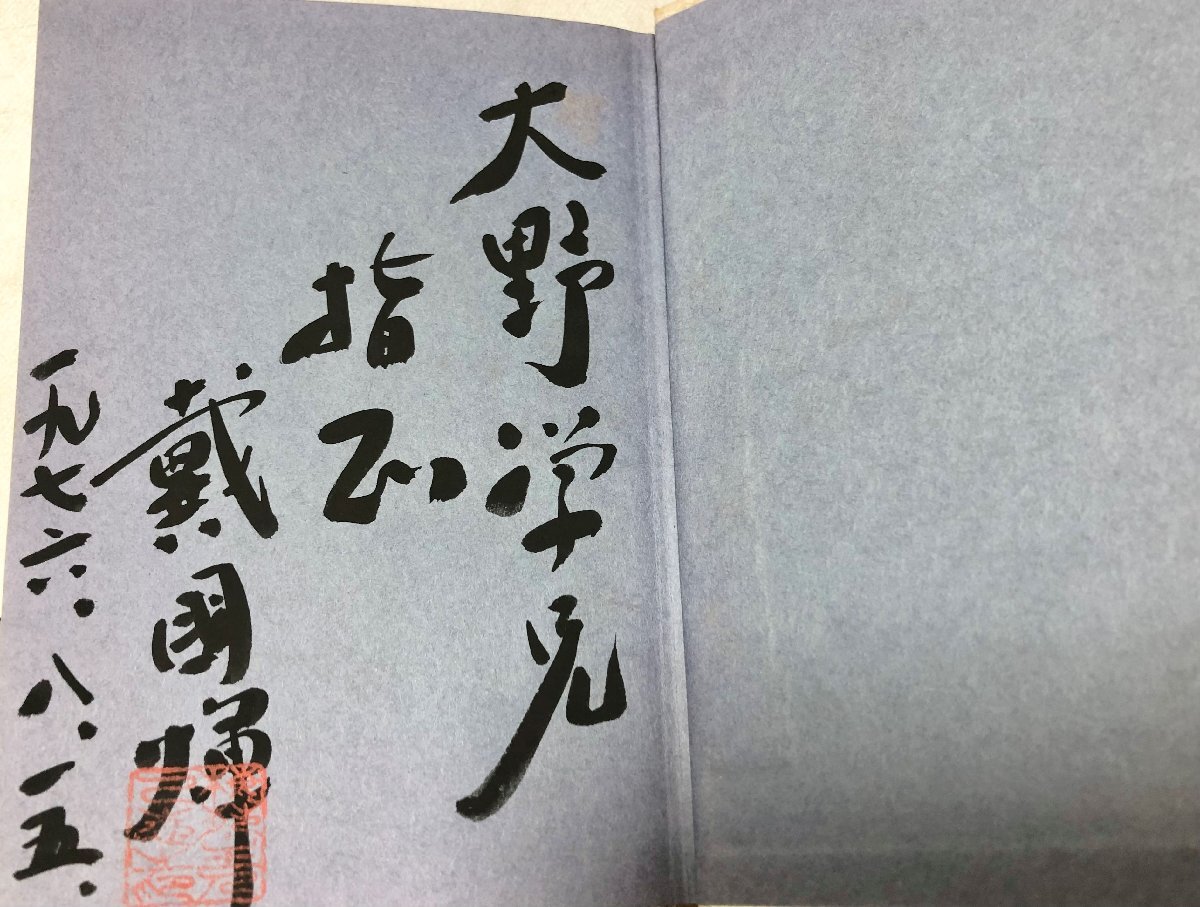 大野学兄
指正
戴國煇
一九七六.八.一五.